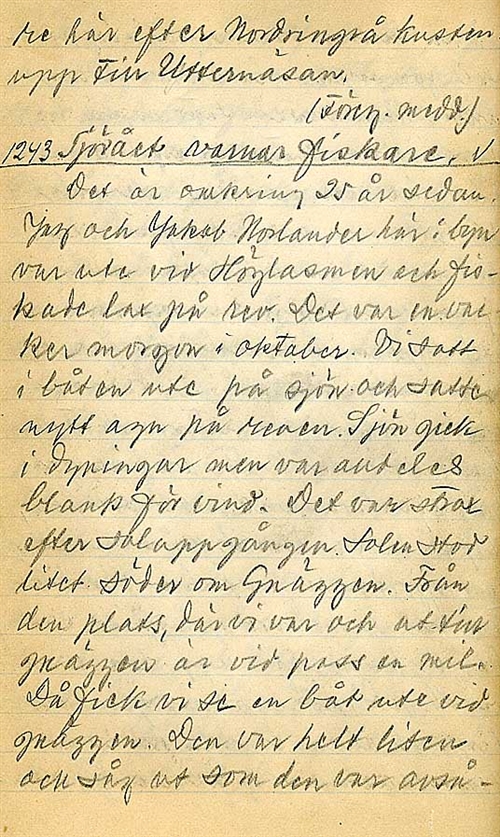 re här efter Nordringrå kusten
upp till Utternäsan.
(Föreg. medd.)
1243 Sjörået varnar fiskare. V
Det är omkring 25 år sedan.
Jag och Jakob Norlander här i byn
var ute vid och fis-
kade lax på rev. Det var en vac-
ker morgon i oktober. Vi satt
i båten ute på sjön och satte
nytt agn på reven. Sjön gick
i dyningar men var alldeles
blank för vind. Det var strax
efter soluppgången. Solen stod
litet söder om Gnäggen. Från
den plats, där vi var och ut till
gnäggen är vid pass en mil.
Då fick vi se en båt ute vid
gnäggen. Den var helt liten
och såg ut som den var avså-